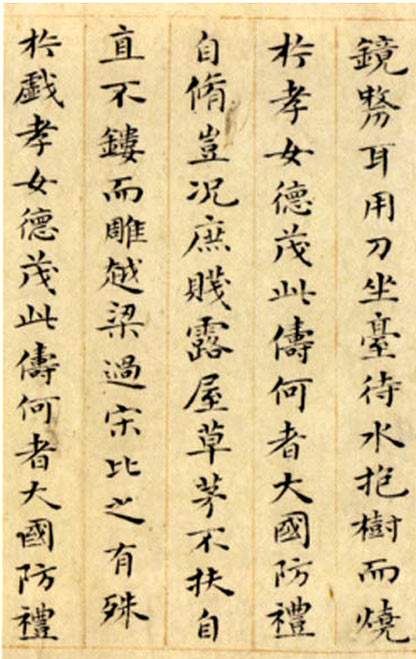 鏡剺耳用刀坐臺待水抱樹而燒
於孝女德茂此儔何者大國防禮
自脩豈況庶賤露屋草茅不扶自
直不鏤而雕越梁過宋比之有殊
於戲孝女德茂此儔何者大國防禮